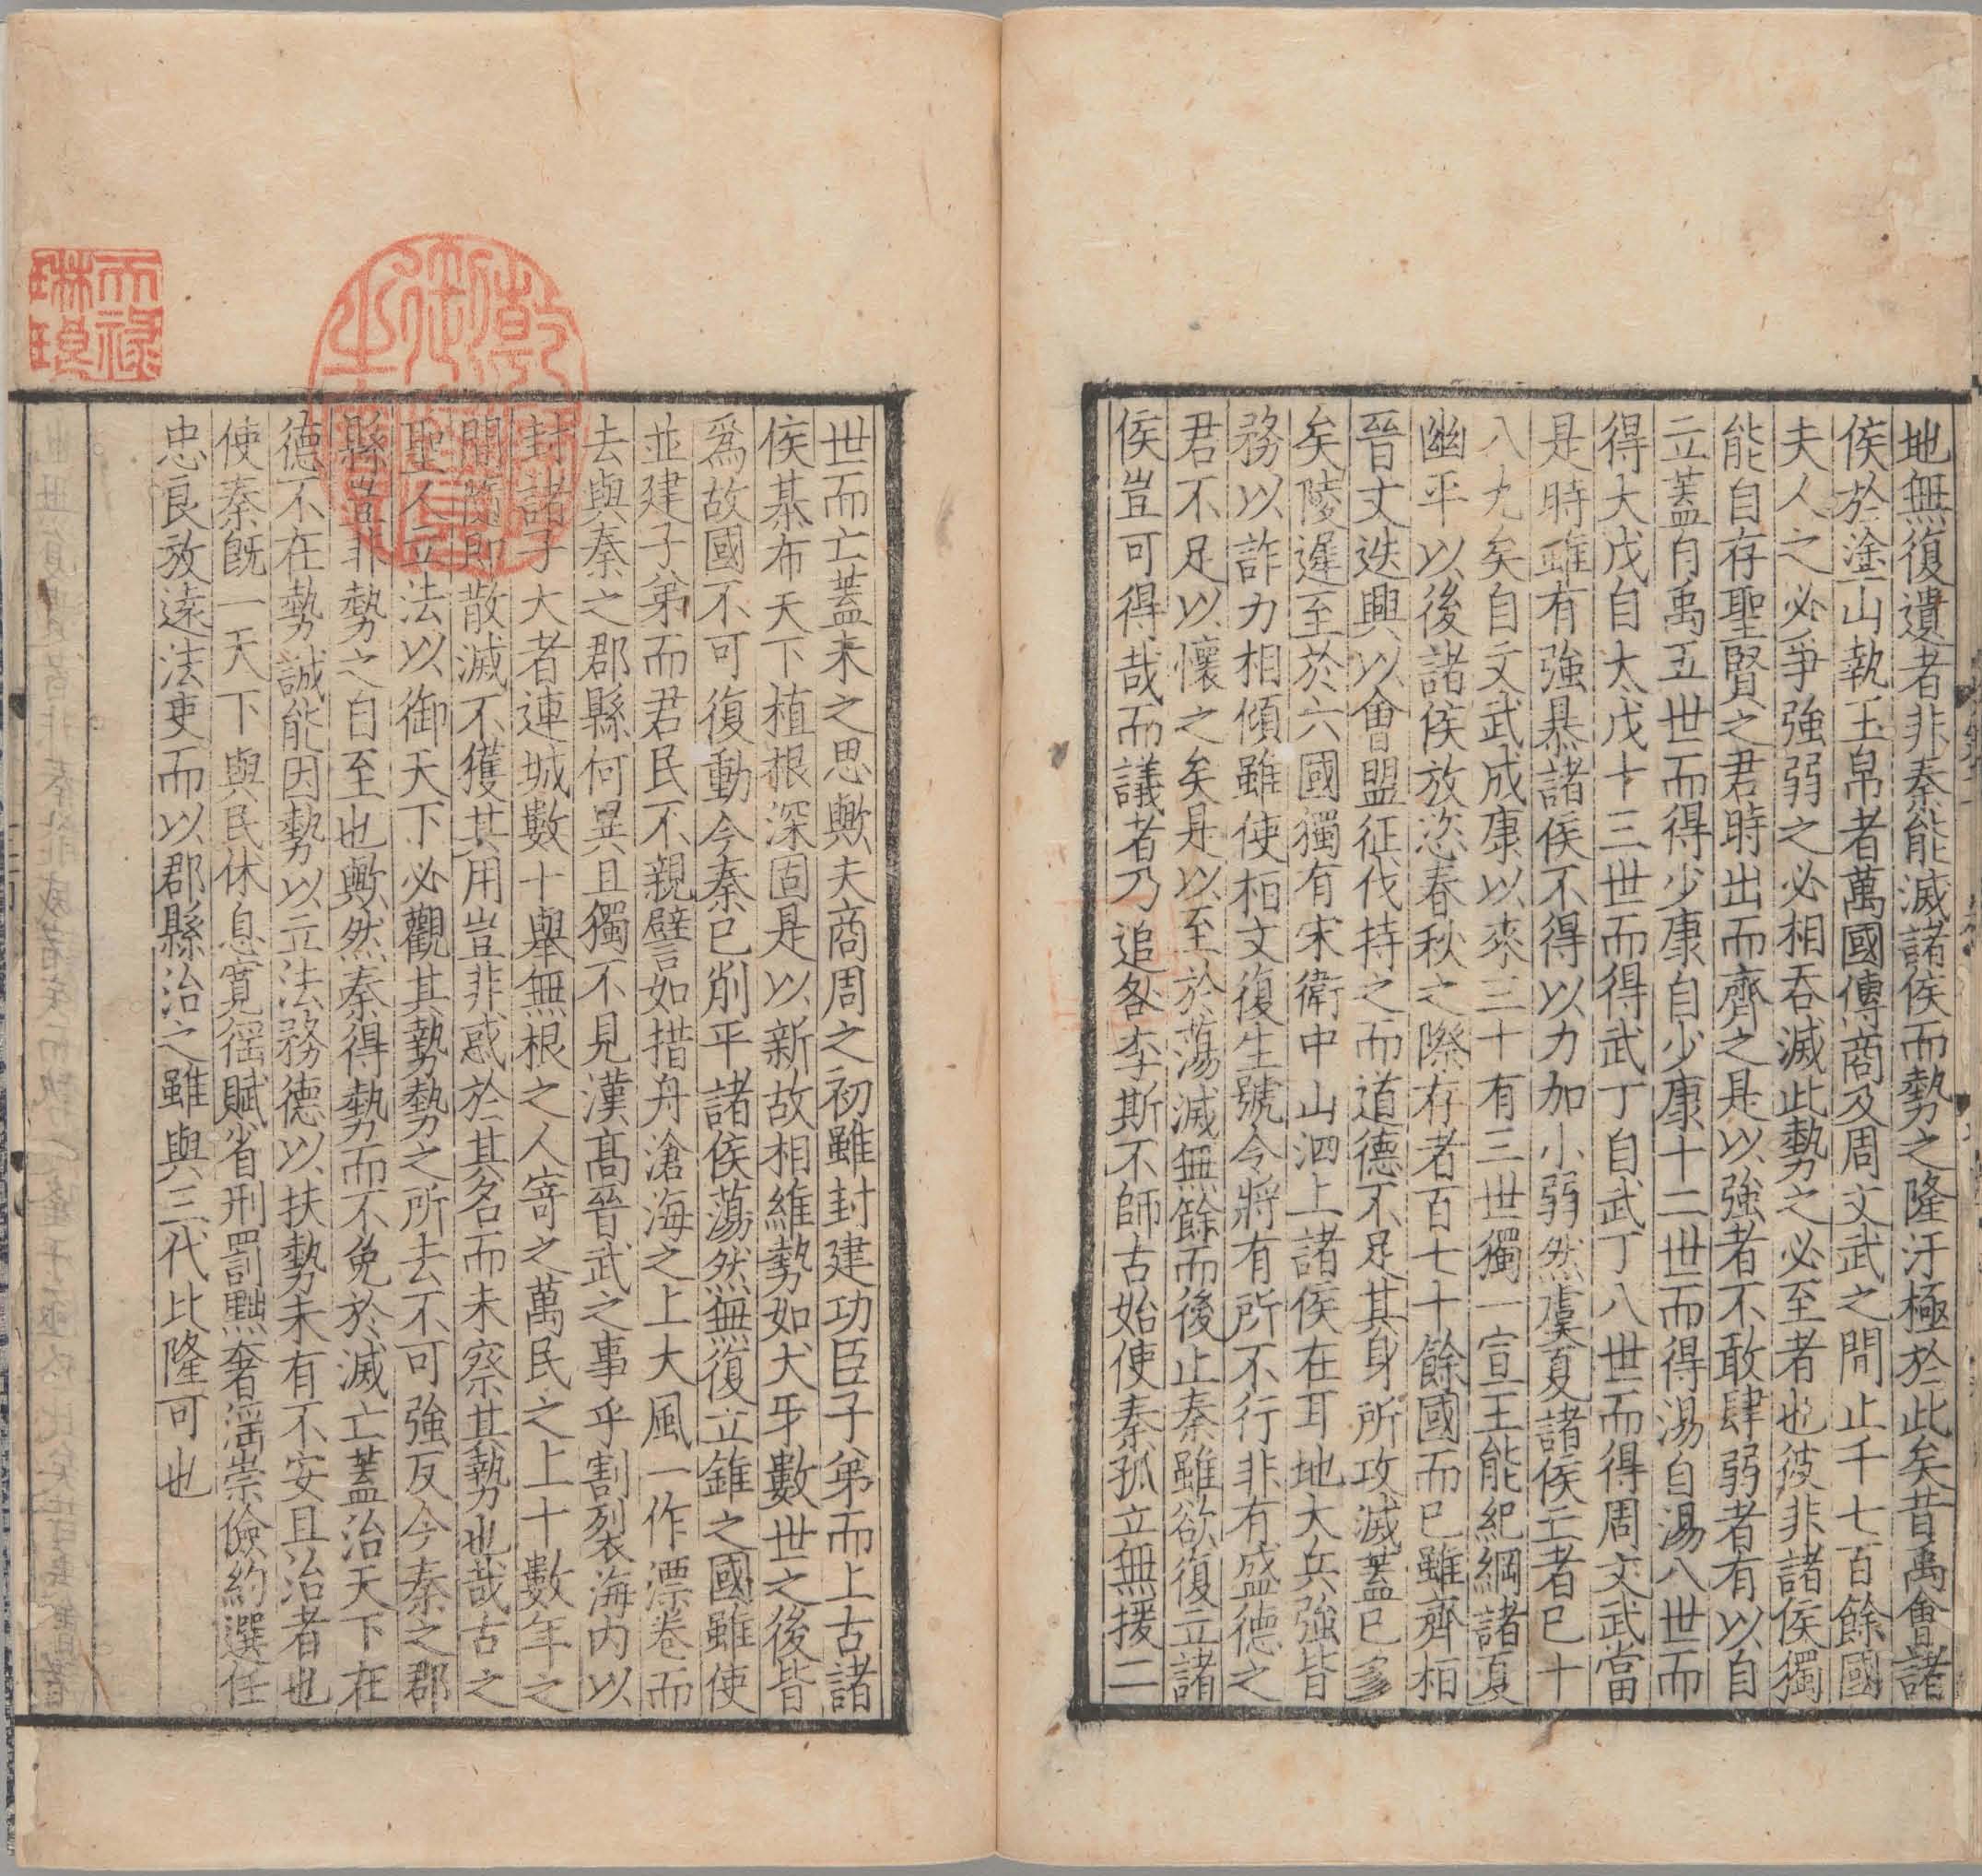 地無復遺者非秦能滅諸侯而勢之隆汙極於此矣昔禹會諸
侯於塗山執玉帛者萬國傳商及周文武之間止千七百餘國
夫人之必爭強弱之必相吞滅此勢之必至者也彼非諸侯獨
能自存聖賢之君時出而齊之是以強者不敢肆弱者有以自
立蓋自禹五世而得少康自少康十二世而得湯自湯八世而
得大戊自大戊十三世而得武丁自武丁八世而得周文武當
是時雖有強暴諸侯不得以力加小弱然虞夏諸侯亡者已十
八九矣自文武成康以來三十有三世獨一宣王能紀綱諸夏
幽平以後諸侯放恣春秋之際存者百七十餘國而已雖齊栢
晉文迭興以會盟征伐持之而道德不足其身所攻滅蓋已多
矣陵遲至於六國獨有宋衛中山泗上諸侯在耳地大兵強皆
務以詐力相傾雖使栢文復生號令將有所不行非有盛德之
君不足以懷之矣是以至於蕩滅無餘而後止秦雖欲復立諸
侯豈可得哉而議者乃追咎李斯不師古始使秦孤立無援二
世而亡蓋未之思歟夫商周之初雖封建功臣子弟而上古諸
侯棊布天下植根深固是以新故相維勢如犬牙數世之後皆
爲故國不可復動今秦已削平諸侯蕩然無復立錐之國雖使
並建子弟而君民不親譬如措舟滄海之上大風一作漂卷而
去與秦之郡縣何異且獨不見漢高晉武之事乎割裂海内以
封諸子大者連城數十舉無根之人寄之萬民之上十數年之
間隨即散滅不獲其用豈非惑於其名而未察其勢也哉古之
聖人立法以御天下必觀其勢勢之所去不可強反今秦之郡
縣豈非勢之自至也歟然秦得勢而不免於滅亡蓋治天下在
德不在勢誠能因勢以立法務德以扶勢未有不安且治者也
使秦旣一天下與民休息寬徭賦省刑罰黜奢淫崇儉約選任
忠良放遠法吏而以郡縣治之雖與三代比隆可也
天禄
琳琅